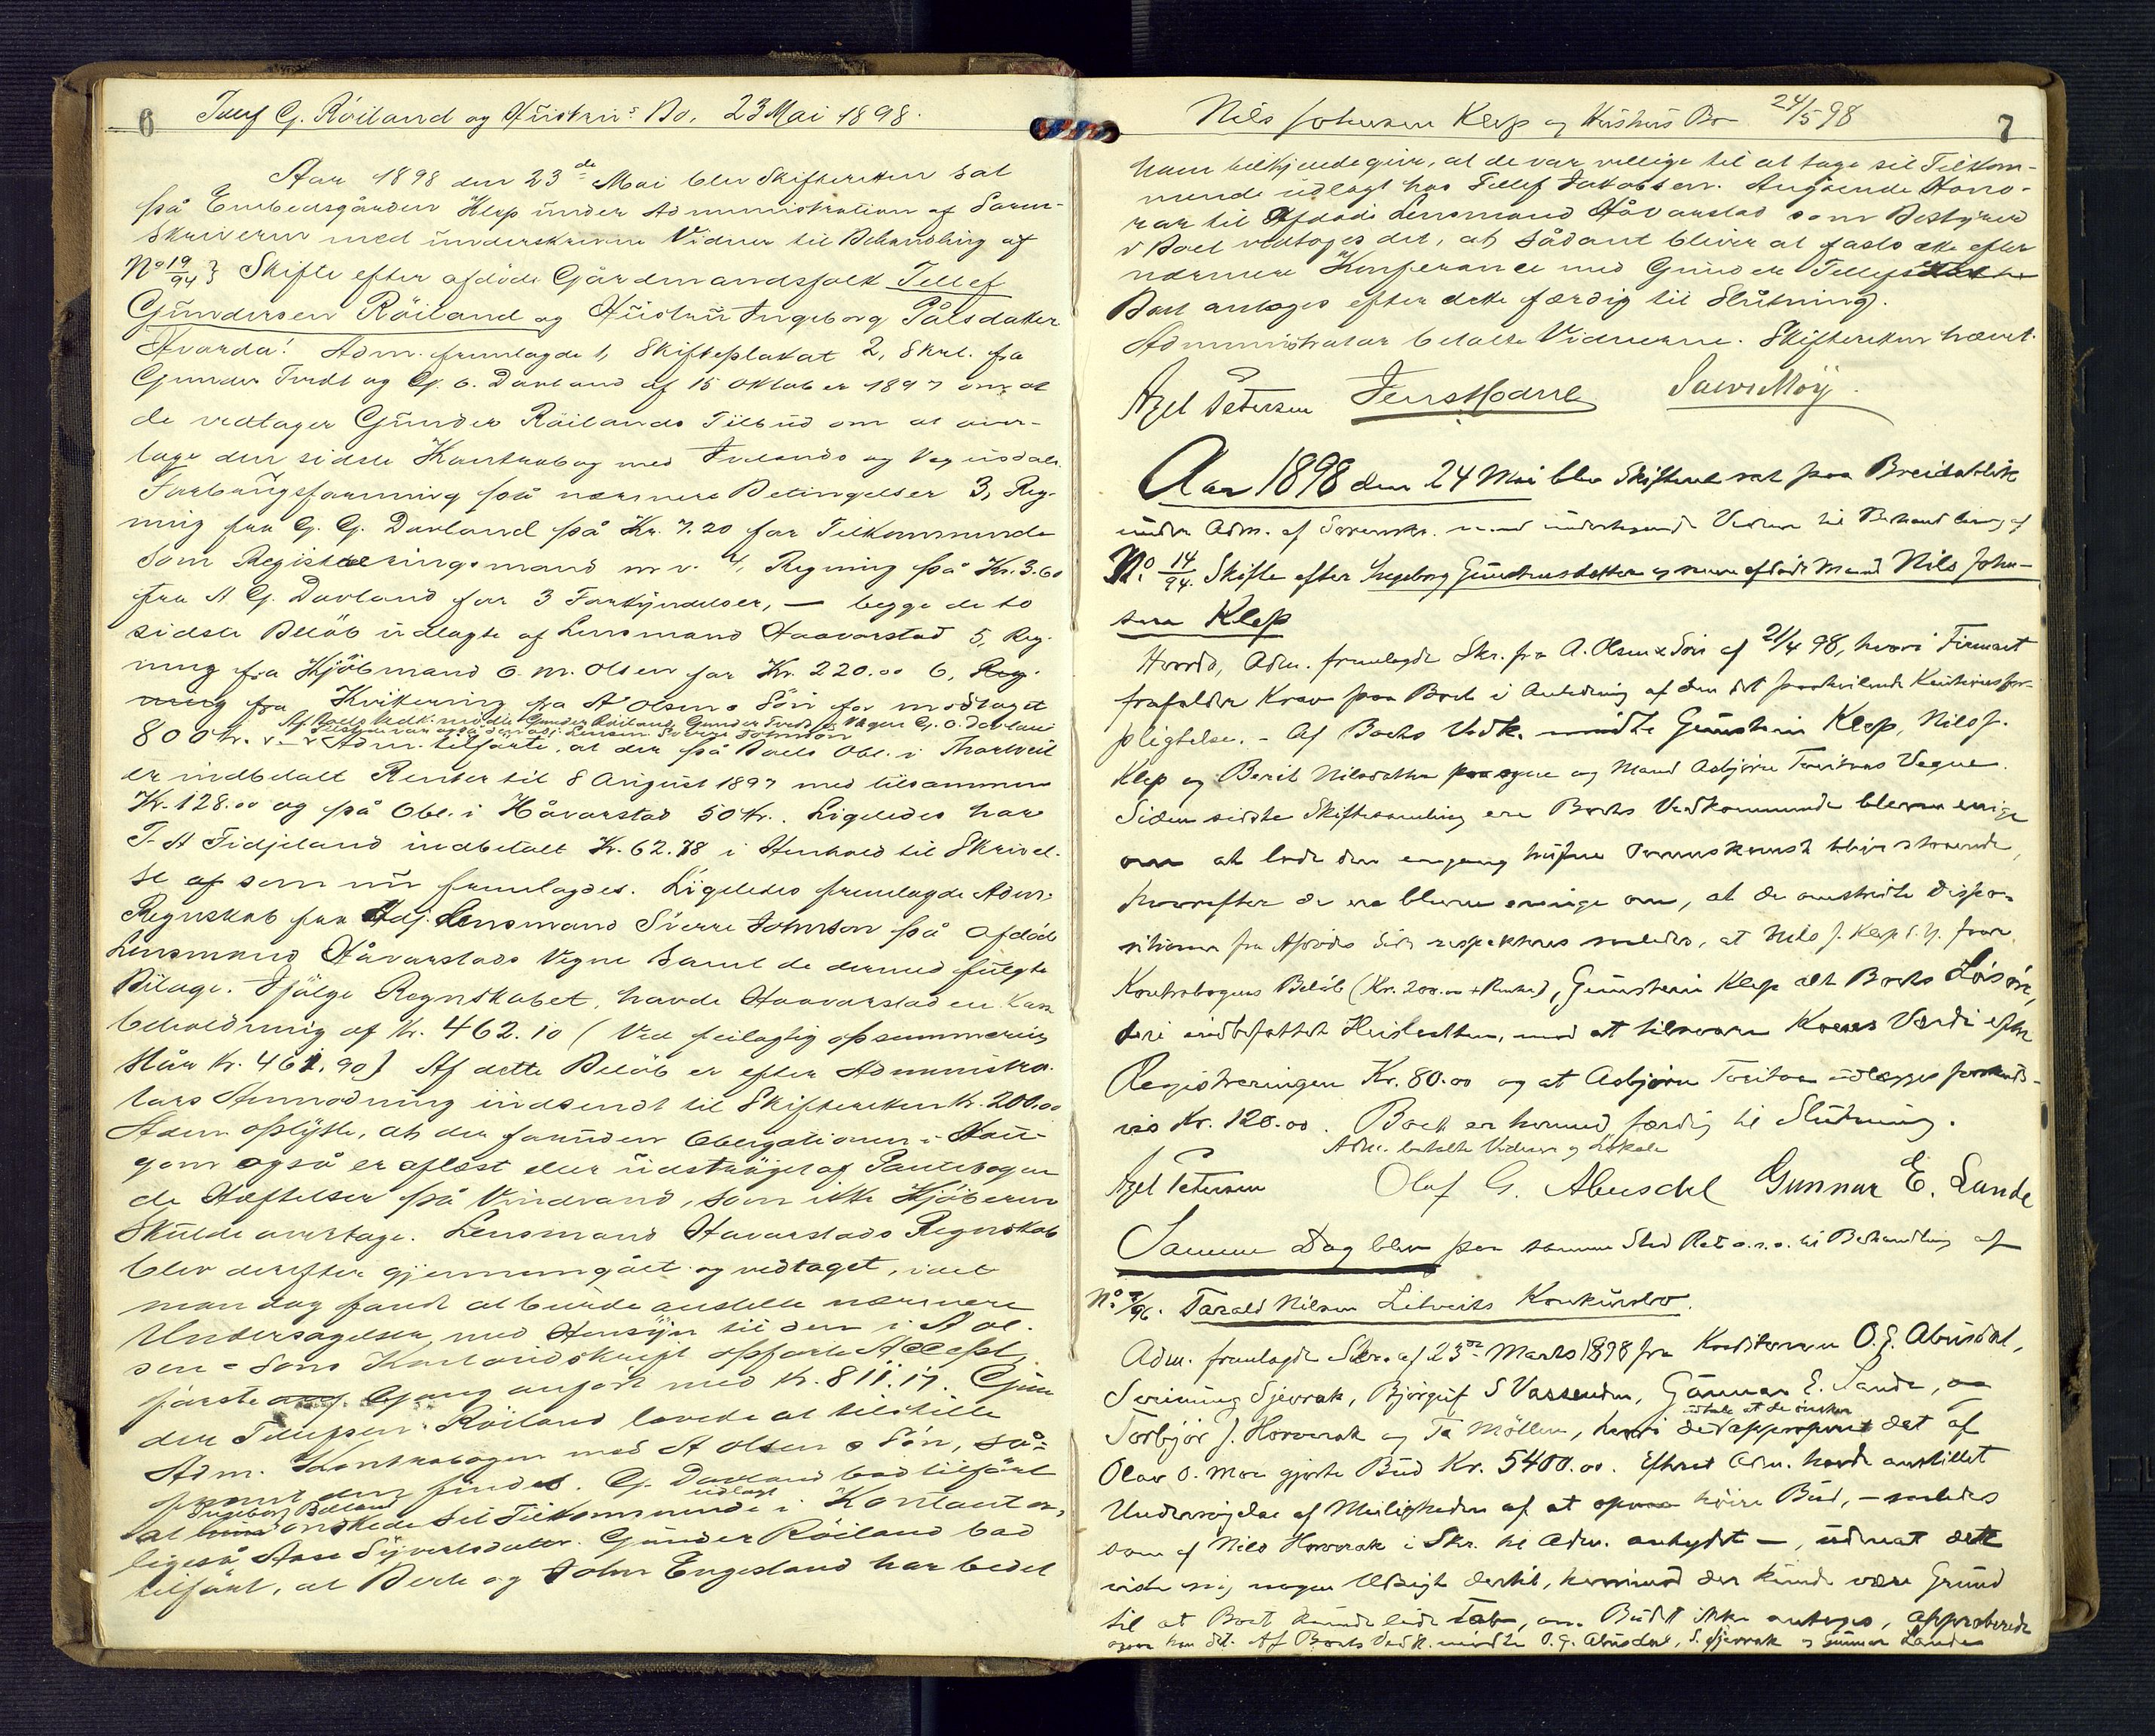 6
Tellef G. Röiland og Hüstrüs Bo. 23 Mai 1898.
Aar 1898 den 23de Mai blev Skifteretten sat
på Embedsgården Klep ünder Administration af Soren-
skriveren med ünderskrevne Vidner til Behandling af
No 19/94} Skifte efter afdöde Gårdmandsfolk Tellef
Gündersen Röiland og Hüstrü Ingeborg Pålsdatter
Hvorda! Adm. fremlagde 1, Skifteplakat 2, Skrl. fra
Gunder Tredt og G. G. Dovland af 15 Oktober 1897 om at
de vedtager Günder Röilands Tilbüd om at over-
tage den sidste Kontrabog med Ivelands og Vegüsdals
Forbrügsforening på nærmere Betingelser 3, Reg-
ning fra G. G. Dovland på Kr. 7.20 for Tilkommende
som Registreringsmand m.v. 4, Regning på Kr. 3.60
fra A G. Dovland for 3 Forkyndelser, — begge de to
sidste Belöb üdlagte af Lensmand Haavarstad 5, Reg-
ning fra Kjöbmand O. M. Olsen for Kr. 220.00 6, Reg-
ning fra Kvittering fra A Olsen & Sön for modtaget
Af Boets Vedk. mödte Gunder Röiland, Gunder Tredt og Vegne G. O. Dovland
Tilstede var også Lensm. Sverre Johnson
800 Kr. Adm. tilförte, at der på Boets Obl. i Thortveit
er indbetalt Renter til 8 Aügüst 1897 med tilsammen
Kr. 128.00 og på Obl. i Håvarstad 50 Kr. Ligeledes har
T. A Fidjeland indbetalt Kr. 62.78 i Henhold til Skrivel-
se af som nü fremlagdes. Ligeledes fremlagde Adm.
Regnskab fra Adj. Lensmand Sverre Johnson på afdöde
Lensmand Håvarstads Vegne samt de dermed fülgte
Bilage. Ifölge Regnskabet, havde Haavarstad en Kasse
beholdning af Kr. 462.10 (Ved feilagtig opsummering
står Kr. 461.90) Af dette Belöb er efter Administra-
tors Anmodning indsendt til Skifteretten Kr. 200.00
Adm oplyste, at der forüden Obligationen i Hau-
gom også er aflæst eller üdströget af Pantebogen
de Hæftelser på Vindrand, som ikke Kjöberen
skülde overtage. Lensmand Havarstads Regnskab
blev derefter gjennemgået og vedtaget, idet
man dog fandt at bürde anstille nærmere
Undersögelser, med Hensyn til den i A Ol-
sen & Söns Kontoudskrift opförte Accept,
förste Gang anfört med Kr. 811.17. Gün-
der Tellefsen Röiland lovede at tilstille
Adm. Kontrabogen med A Olsen & Sön, så-
fremt den findes. G. Dovland bad tilfört
Ingeborg Birkeland
üdlagt
at önskede sit Tilkommende i Kontanter,
ligeså Aase Syvertsdatter. Günder Röiland bad
tilfört, at Berte og John Engesland har bedet
Nils Johnsen Klep og Hüstrüs Bo 24/5 98
7
ham tilkjendegive, at de var villige til at tage sit Tilkom-
mende üdlagt hos Tellef Jakobsen. Angående Hono-
rar til Afdöde Lensmand Håvarstad som Bestyrer
i Boet vedtoges det, at sådant bliver at fastsætte efter
nærmere Konferance med Günder Tellefs
Boet antages efter dette færdig til Slütning.
Administrator betalte Vidnerne. Skifteretten hævet.
Axel Petersen
Aar 1898 den 24 Mai blev Skifteret sat paa Breidablik
under Adm. af Sorenskr. med ündertegnede Vidner til Behandling af
No. 14/94. Skifte efter Ingeborg Günstensdatter og nu afdöde Mand Nils John-
sen Klep
Hvorda, Adm. fremlagde Skr. fra A. Olsen & Sön af 21/4 98, hvori Firmaet
frafalder Krav paa Boet i Anledning af den det paahvilende Kautionsfor-
pligtelse. - Af Boets Vedk. mödte Günstein Klep, Nils J.
Klep og Berit Nilsdatter paa egne og Mand Asbjörn Tveitaas Vegne.
Siden sidste Skiftesamling ere Boets Vedkommende blevne enige
om at lade den engang trüfne Overenskomst blive staaende,
hvorefter de ere blevne enige om, at de omstridte Dispo-
sitioner fra Afdödes Side respekteres saaledes, at Nils J. Klep d.y. faar
Kontrabogens Belöb (Kr. 200.00 + Renter), Günstein Klep alt Boets Lösöre,
deri indbefattet Hesten, mod at tilsvare Koens Værdi efter
Registreringen Kr. 80.00 og at Asbjörn Tveitaa üdlægges forskuds-
vis Kr. 120.00. Boet er hermed færdig til Slütning.
Adm. betalte Vidner og Lokale
Axel Petersen Olaf G. Abusdal Gunnar E. Lande
Samme Dag blev paa samme Sted Ret o.s.v. til Behandling af
No. 3/96. Tarald Nilsen Litveits Konkürsbo.
Adm. fremlagde Skr. af 23de Marts 1898 fra Kreditorerne O. G. Abüsdal,
Serinüng Sjevrak, Björgüf S Vassenden, Günnar E. Lande, og
üdtale at de önsker
Torbjör J. Hovorak og Ta Möllen, hvori det af
Olav O. Moe gjorte Büd Kr. 5400.00. Efterat Adm. havde anstillet
Undersögelse af Muligheden af at opnaa höiere Büd, - saaledes
som af Nils Hovorak i Skr. til Adm. antydet —, üdenat dette
viste sig nogen Udsigt dertil, hvorimod der künde være Gründ
til at Boet künde lide Tab, om Büdet ikke antoges, approberede
ogsaa han det. Af Boets Vedk. mödte O. G. Abüsdal, S. Sjevrak og Günnar Lande